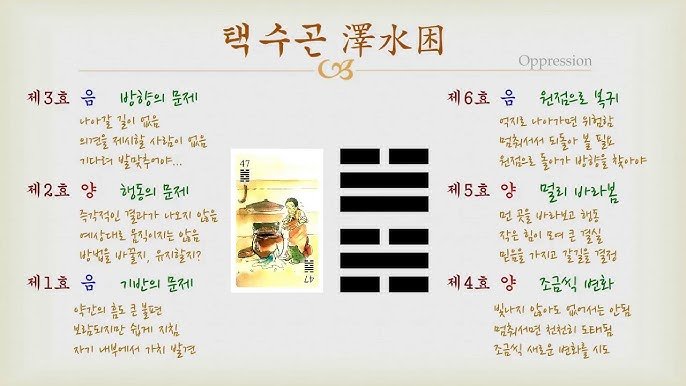 택수곤 澤水困
Oppression
제3효 음 방향의 문제
나아갈 길이 없음
의견을 제시할 사람이 없음
기다려 발맞추어야...
제2효 양 행동의 문제
즉각적인 결과가 나오지 않음
예상대로 움직이지는 않음
방법을 바꿀지, 유지할지?
제1효 음 기반의 문제
약간의 흠도 큰 불편
보람되지만 쉽게 지침
자기 내부에서 가치 발견
47
47
제6효 음 원점으로 복귀
억지로 나아가면 위험함
멈춰서서 되돌아 볼 필요
원점으로 돌아가 방향을 찾아야
제5효 양 멀리 바라봄
먼 곳을 바라보고 행동
작은 힘이 모여 큰 결실
믿음을 가지고 갈길을 결정
제4효 양 조금씩 변화
빛나지 않아도 없어서는 안됨
멈춰서면 천천히 도태됨
조금씩 새로운 변화를 시도